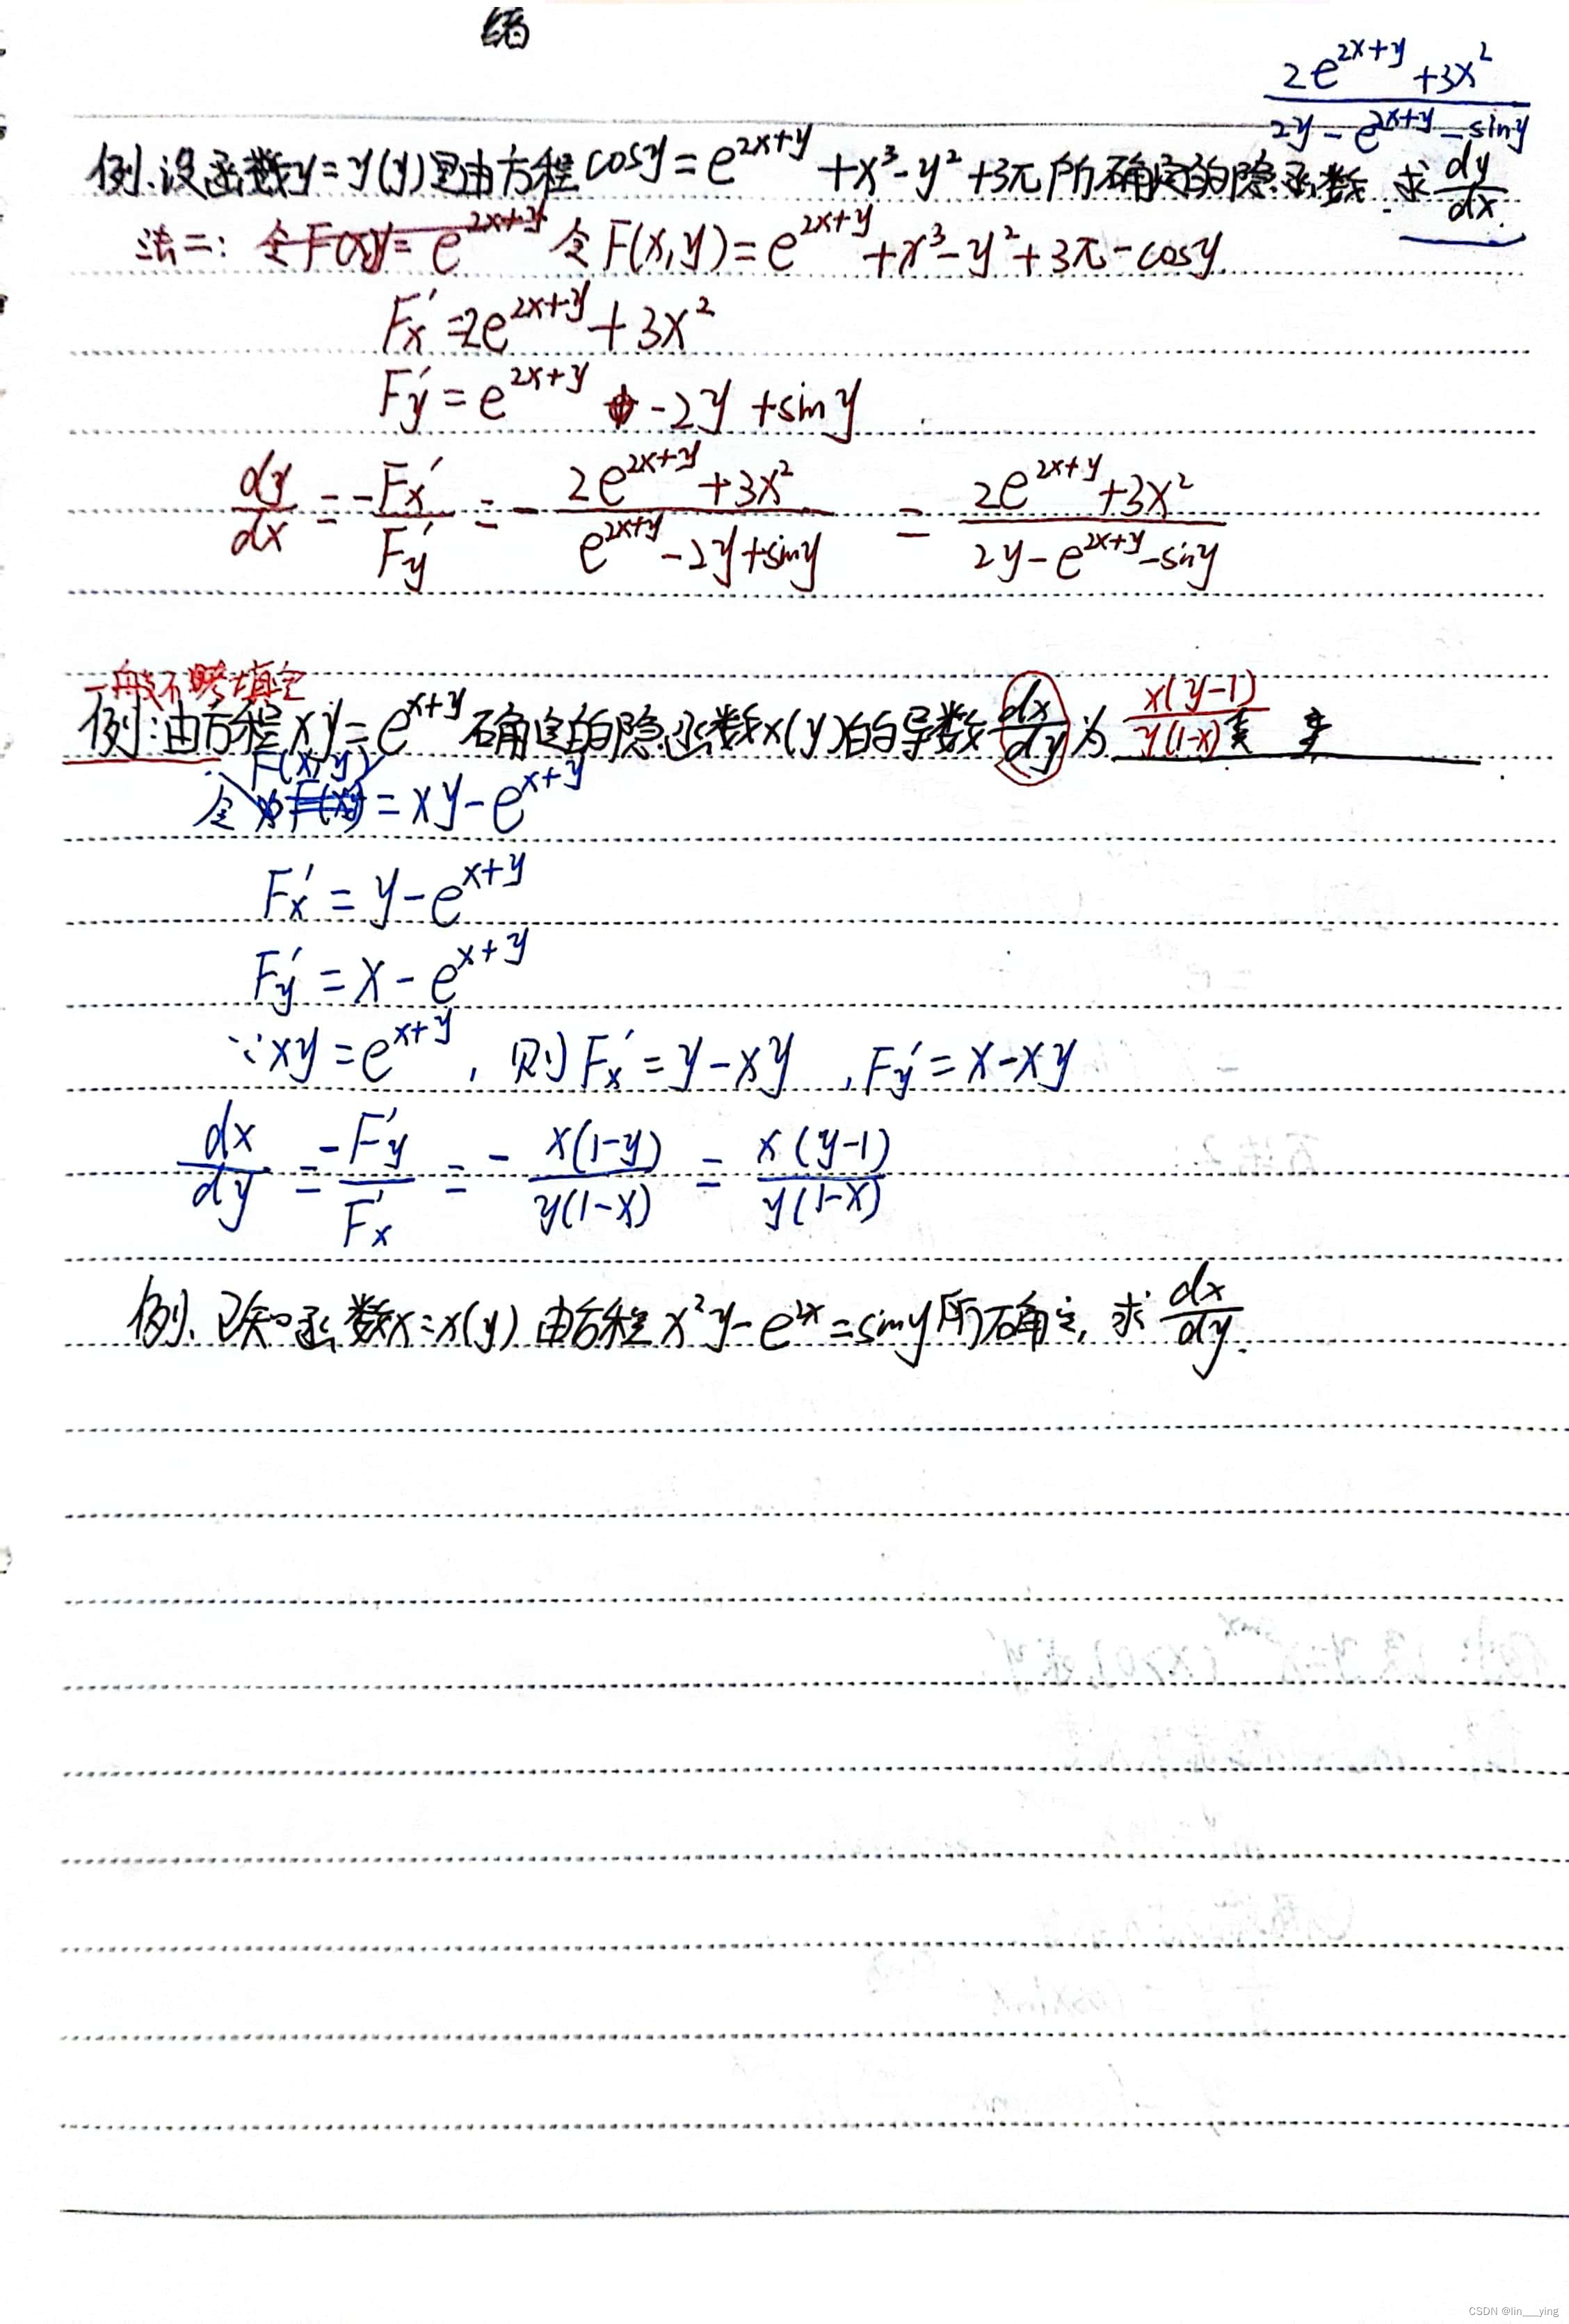 绪
2e^{2x+y}+3x²
2y-e^{2x+y}-siny
例.设函数y=y(y)是由方程cosy=e^{2x+y}+x³-y²+3π所确定的隐函数.求dy/dx.
法二:令F(xy)=e^{2x+y} 令F(x,y)=e^{2x+y}+x³-y²+3π-cosy
Fx'=2e^{2x+y}+3x²
Fy'=e^{2x+y}-2y+siny
dy/dx=-Fx'/Fy'=-(2e^{2x+y}+3x²)/(e^{2x+y}-2y+siny)=(2e^{2x+y}+3x²)/(2y-e^{2x+y}-siny)
一般不考填空
例:由方程xy=e^{x+y}确定的隐函数x(y)的导数dx/dy为 x(y-1)/y(1-x) .
令F(x,y)=xy-e^{x+y}
Fx'=y-e^{x+y}
Fy'=x-e^{x+y}
∵xy=e^{x+y},则Fx'=y-xy,Fy'=x-xy
dx/dy=-F'y/F'x=-x(1-y)/y(1-x)=x(y-1)/y(1-x)
例.已知函数x=x(y)由方程x²y-e^{2x}=siny所确定,求dx/dy.
CSDN @lin___ying